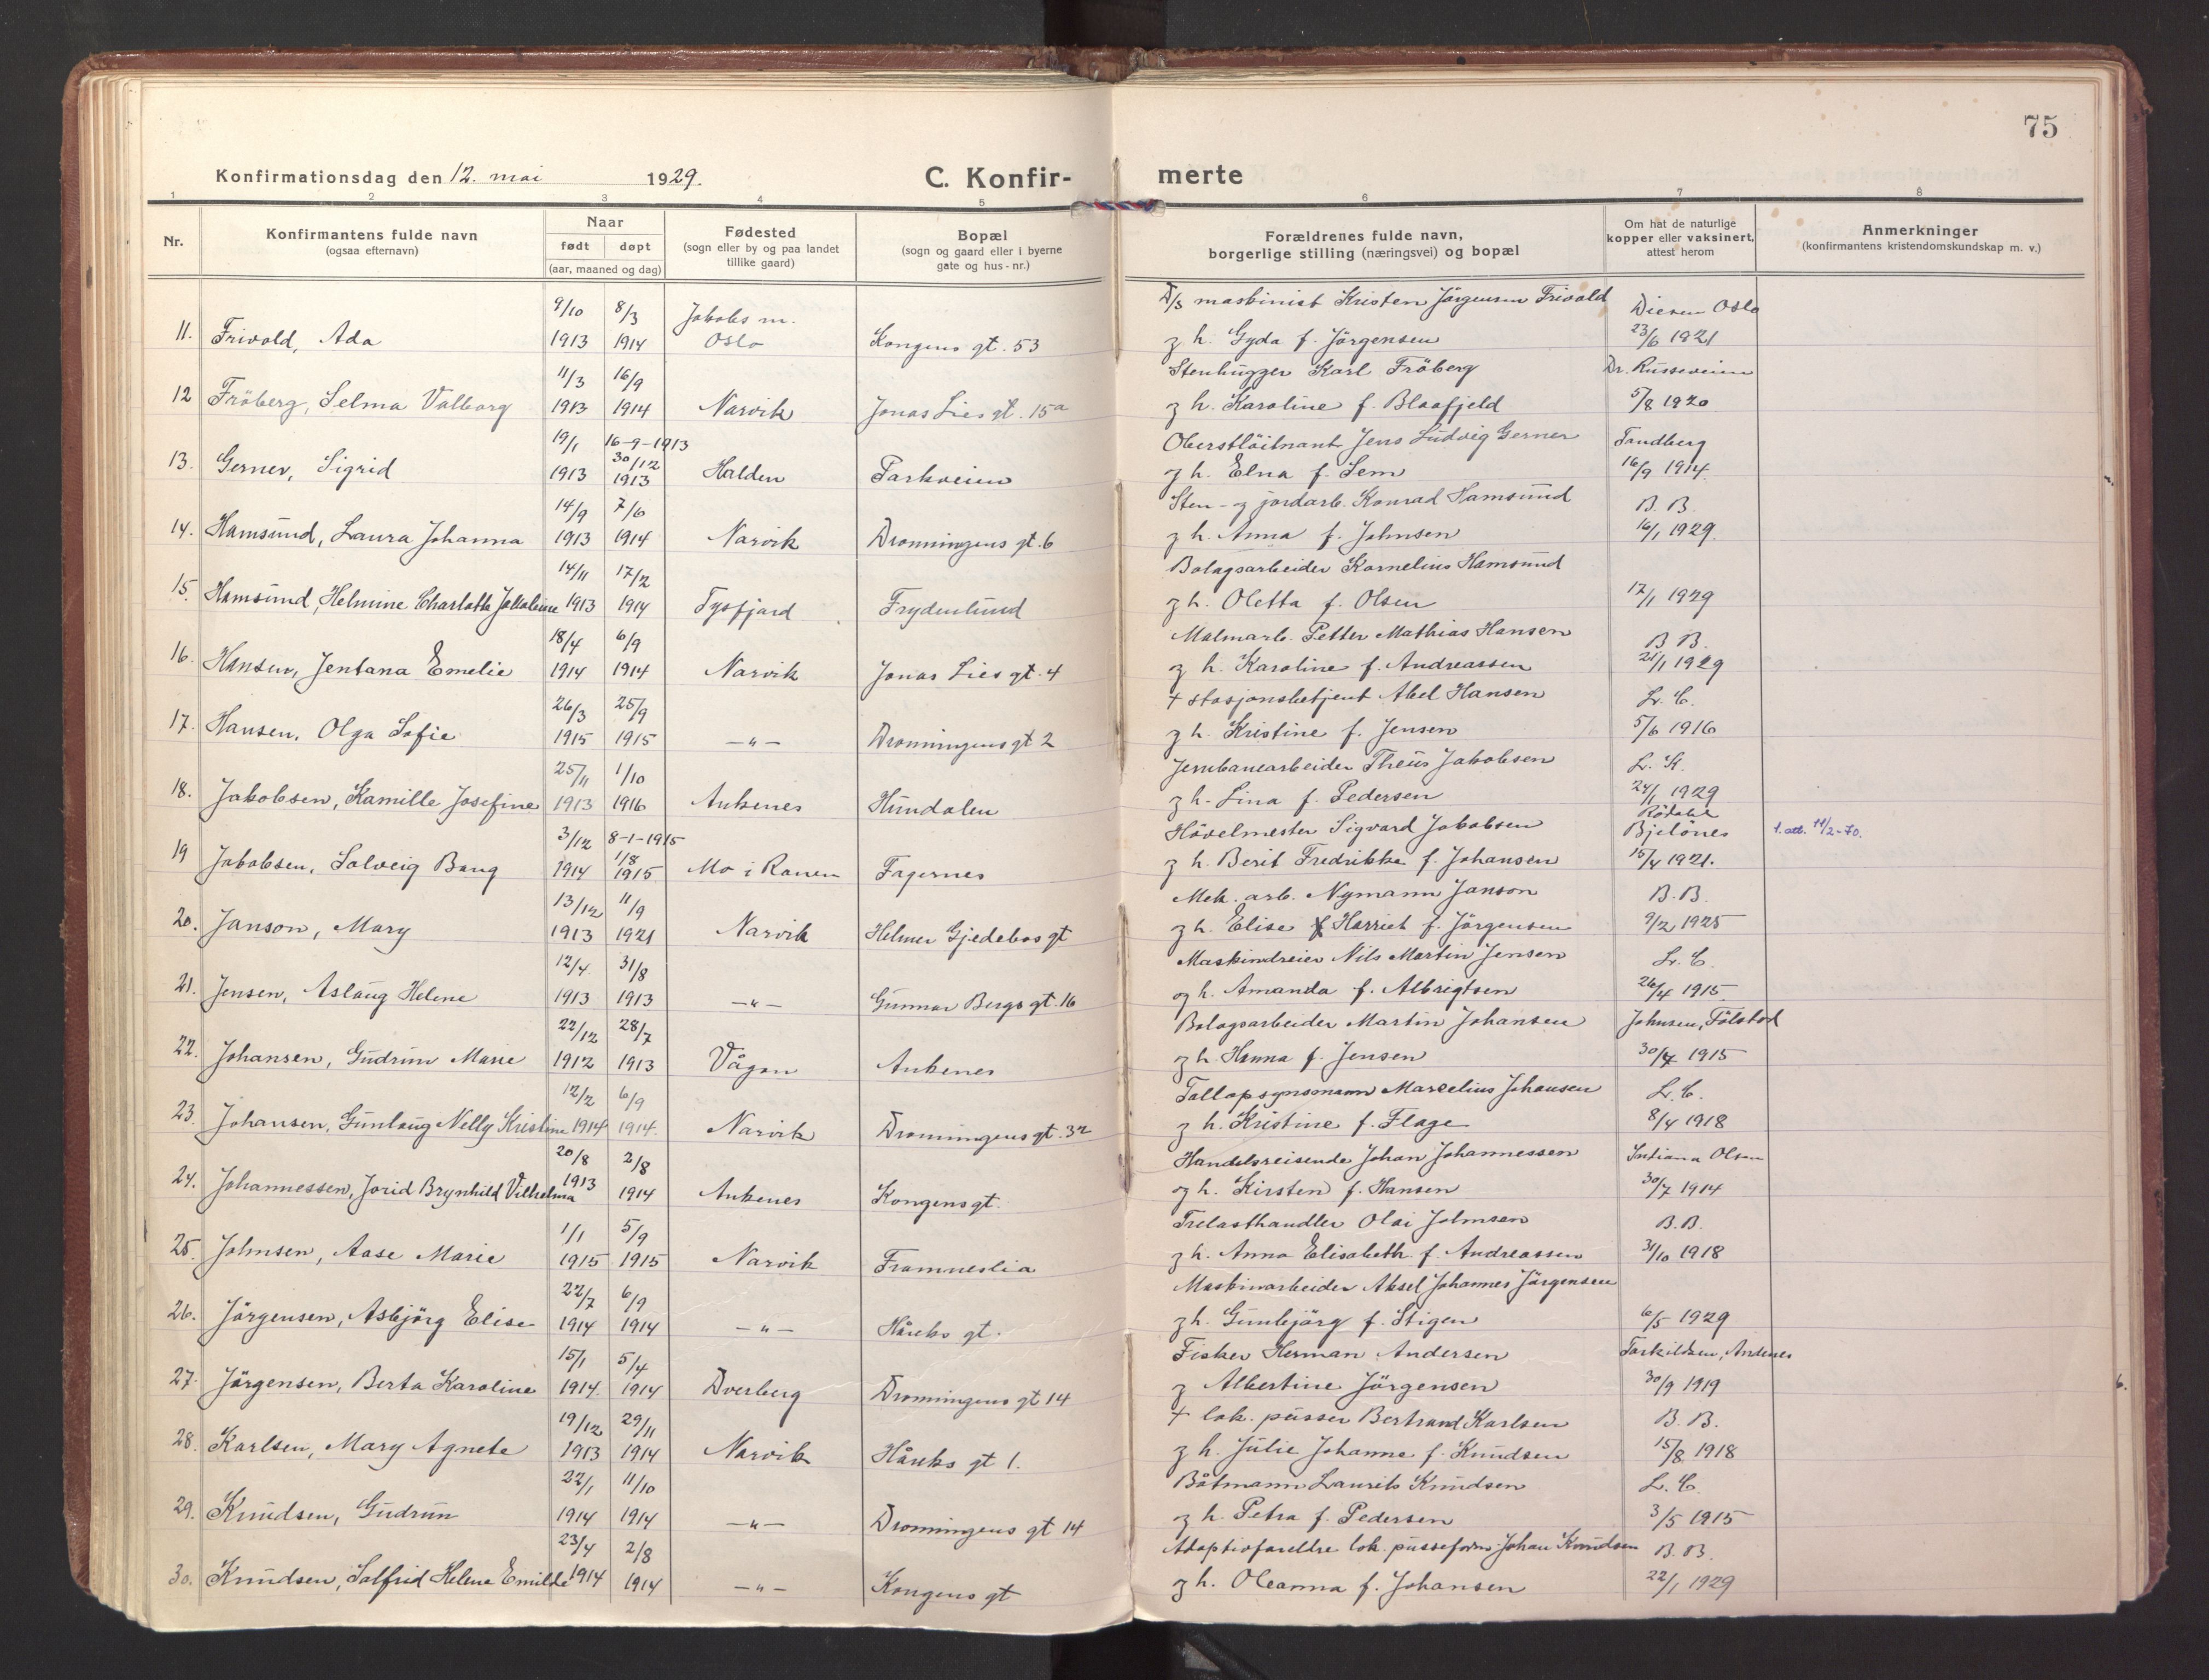 75
Konfirmationsdag den 12. mai 1929. C. Konfir- merte
1 2 3 4 5 6 7 8
Nr.
Konfirmantens fulde navn
(ogsaa efternavn)
Naar
født døpt
(aar, maaned og dag)
Fødested
(sogn eller by og paa landet
tillike gaard)
Bopæl
(sogn og gaard eller i byerne
gate og hus-nr.)
Forældrenes fulde navn,
borgerlige stilling (næringsvei) og bopæl
Om hat de naturlige
kopper eller vaksinert,
attest herom
Anmerkninger
(konfirmantens kristendomskundskap m. v.)
9/10 8/3 Jakobs m. D/s maskinist Kristen Jörgensen Frivold Oslo
11. Frivold, Ada 1913 1914 Oslo Kongens gt. 53 g h. Gyda f. Jörgensen 23/6 1921
11/3 16/9 Stenhugger Karl Fröberg Dr.
12 Fröberg, Selma Valborg 1913 1914 Narvik Jonas Lies gt. 15a g h. Karoline f. Blaafjeld 5/8 1920
19/1 16-9-1913 Oberstlöitnant Jens Ludvig Gerner Tandberg
30/12
13. Gerner, Sigrid 1913 1913 Halden Parkveien g h. Elna f. Sem 16/9 1914.
14/9 7/6 Sten- g jordarb. Konrad Hamsund B. B.
14. Hamsund, Laura Johanna 1913 1914 Narvik Dronningens gt. 6 g h. Anna f. Johnsen 16/1 1929.
14/11 17/2 Bolagsarbeider Kornelius Hamsund
15. Hamsund, Helmine Charlotte Jakobine 1913 1914 Tysfjord Frydenlund g h. Oletta f. Olsen 17/1 1929
18/4 6/9 Malmarb. Petter Mathias Hansen B B.
16. Hansen, Jentana Emelie 1914 1914 Narvik Jonas Lies gt. 4 g h. Karoline f. Andreassen 21/1 1929
26/3 25/9 + stasjonsbetjent Abel Hansen L. C.
17. Hansen, Olga Sofie 1915 1915 —"— Dronningens gt 2 g h. Kristine f. Jensen 5/6 1916
25/11 1/10 Jernbanearbeider Theus Jakobsen L. K.
18. Jakobsen, Kamille Josefine 1913 1916 Ankenes Hundalen g h. Lina f. Pedersen 24/1 1929
3/12 8-1-1915 Hövelmester Sigvard Jakobsen Bjelönes 1. att. 11/2-70.
1/8
19 Jakobsen, Solveig Bang 1914 1915 Mo i Ranen Fagernes g h. Berit Fredrikke f. Johansen 15/4 1921.
13/12 11/9 Mek. arb. Nymann Janson B. B.
20. Janson, Mary 1913 1921 Narvik Helmer Gjedebos gt g h. Elise Harriet f. Jörgensen 9/2 1925
12/4 31/8 Maskindreier Nils Martin Jensen L. C.
21. Jensen, Aslaug Helene 1913 1913 —"— Gunnar Bergs gt. 16 og h. Amanda f. Albrigtsen 26/4 1915
22/12 28/7 Bolagsarbeider Martin Johansen Johnsen,
22. Johansen, Gudrun Marie 1912 1913 Vågan Ankenes g h. Hanna f. Jensen 30/7 1915
12/2 6/9 Tollopsynsmann Marcelius Johansen L. C.
23. Johansen, Gunlaug Nelly Kristine 1914 1914. Narvik Dronningens gt. 32 g h. Kristine f. Flage 8/4 1918
20/8 2/8 Handelsreisende Johan Johannessen Olsen
24. Johannessen, Jorid Brynhild Vilhelma 1913 1914 Ankenes Kongens gt. og h. Kirsten f. Hansen 30/7 1914
1/1 5/9 Trelasthandler Olai Johnsen B. B.
25. Johnsen, Aase Marie 1915 1915 Narvik Framneslia g h. Anna Elisabeth f. Andreassen 31/10 1918
22/7 6/9 Maskinarbeider Aksel Johannes Jörgensen
26. Jörgensen, Asbjörg Elise 1914 1914 —"— Håreks gt. g h. Gunbjörg f. Stigen 6/5 1929
15/1 5/4 Fisker Herman Andersen Torkildsen, Andenes
27. Jörgensen, Berta Karoline 1914. 1914 Dverberg Dronningens gt 14 g Albertine Jörgensen 30/9 1919
19/12 29/11 + lok. pusser Bertrand Karlsen B. B.
28. Karlsen, Mary Agnete 1913 1914 Narvik Håreks gt 1. g h. Julie Johanne f. Knudsen 15/8 1918
22/1 11/10 Båtmann Laurits Knudsen L. C.
29. Knudsen, Gudrun 1914 1914 —"— Dronningens gt 14 g h. Petra f. Pedersen 3/5 1915
23/4 2/8 Adoptivforeldre lok. pusseform. Johan Knudsen B. B.
30. Knudsen, Solfrid Helene Emilde 1914 1914 —"— Kongens gt g h. Oleanna f. Johansen 22/1 1929